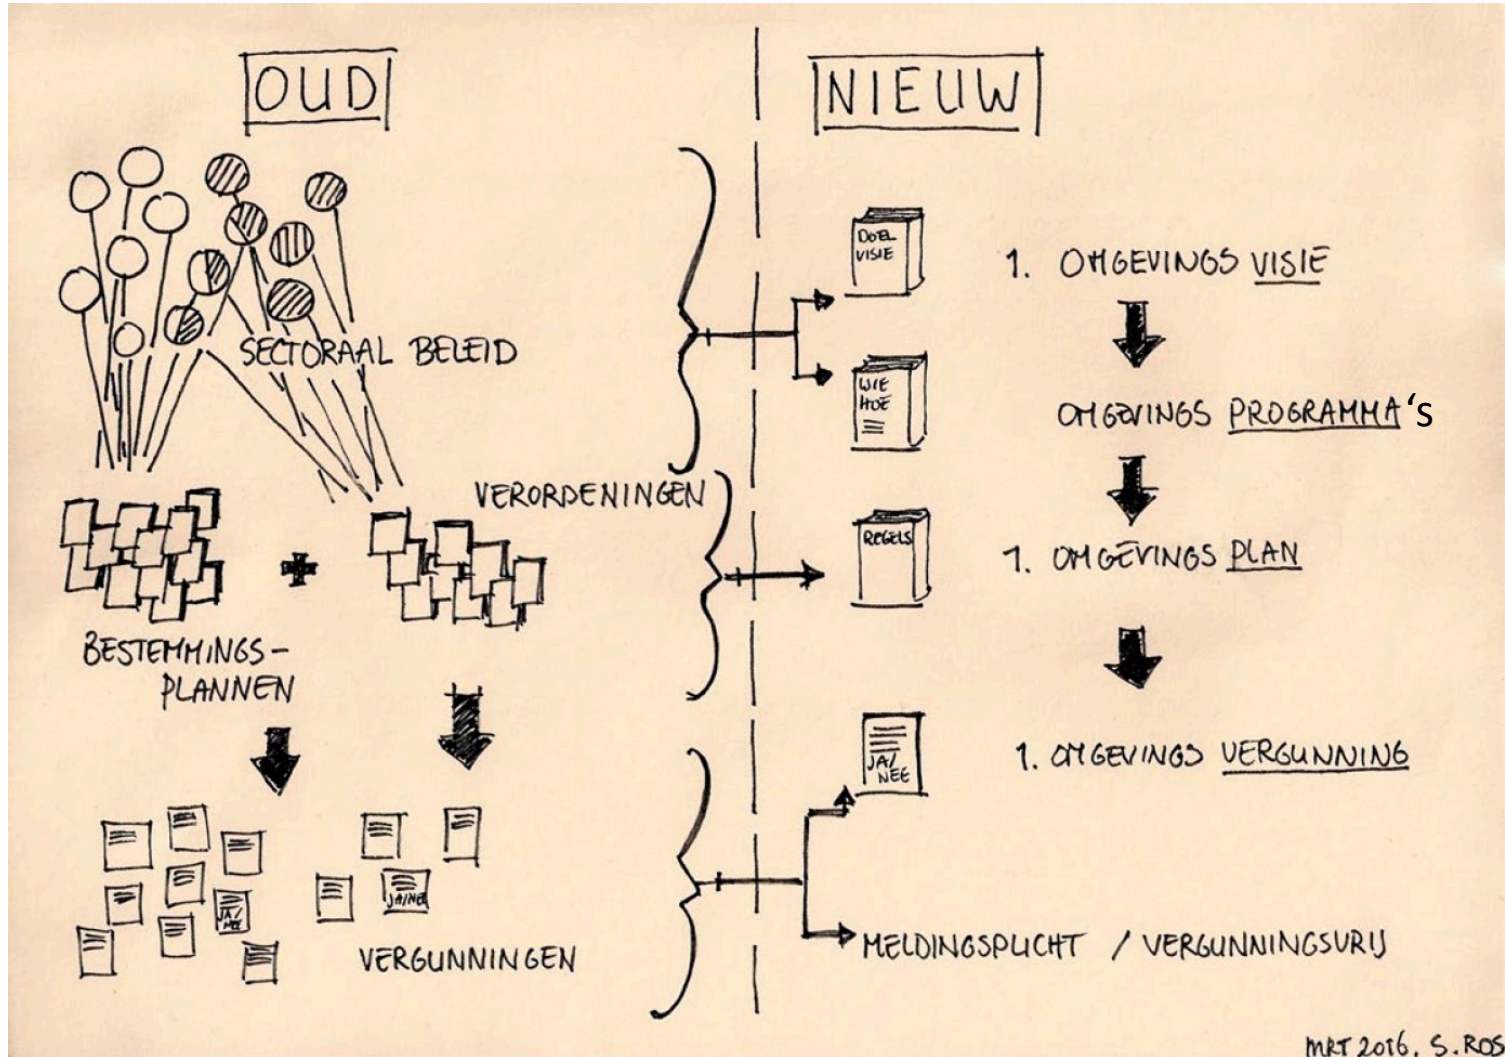 OUD
SECTORAAL BELEID
VERORDENINGEN
BESTEMMINGS-
PLANNEN
JA/
NEE
JA/NEE
VERGUNNINGEN
NIEUW
DOEL
VISIE
1. OMGEVINGS VISIE
WIE
HOE
OMGEVINGS PROGRAMMA's
REGELS
1. OMGEVINGS PLAN
JA/
NEE
1. OMGEVINGS VERGUNNING
MELDINGSPLICHT / VERGUNNINGSVRIJ
MRT 2016. S. ROS